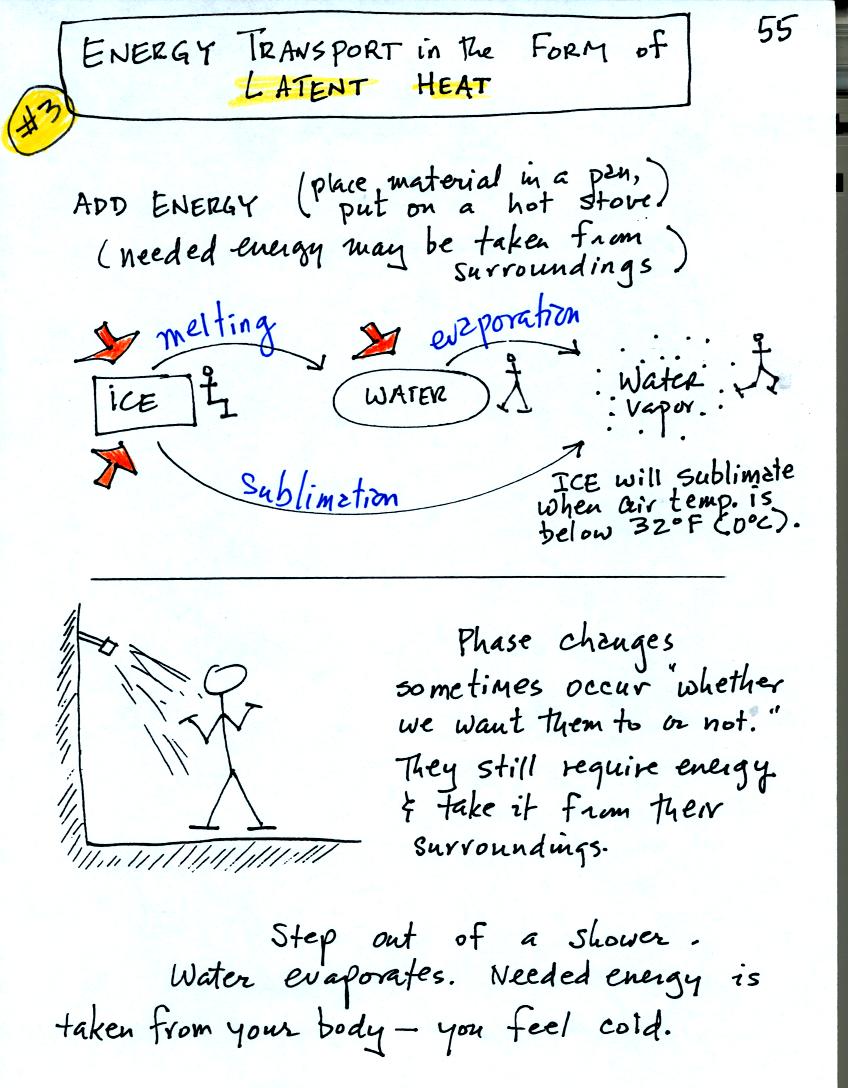 55
ENERGY TRANSPORT in the FORM of
LATENT HEAT
#3
ADD ENERGY (place material in a pan,
put on a hot stove)
(needed energy may be taken from
surroundings)
melting
evaporation
ICE
WATER
Water
vapor.
Sublimation
ICE will sublimate
when air temp. is
below 32°F (0°C).
Phase changes
sometimes occur "whether
we want them to or not."
They still require energy
& take it from their
surroundings.
Step out of a shower.
Water evaporates. Needed energy is
taken from your body — you feel cold.